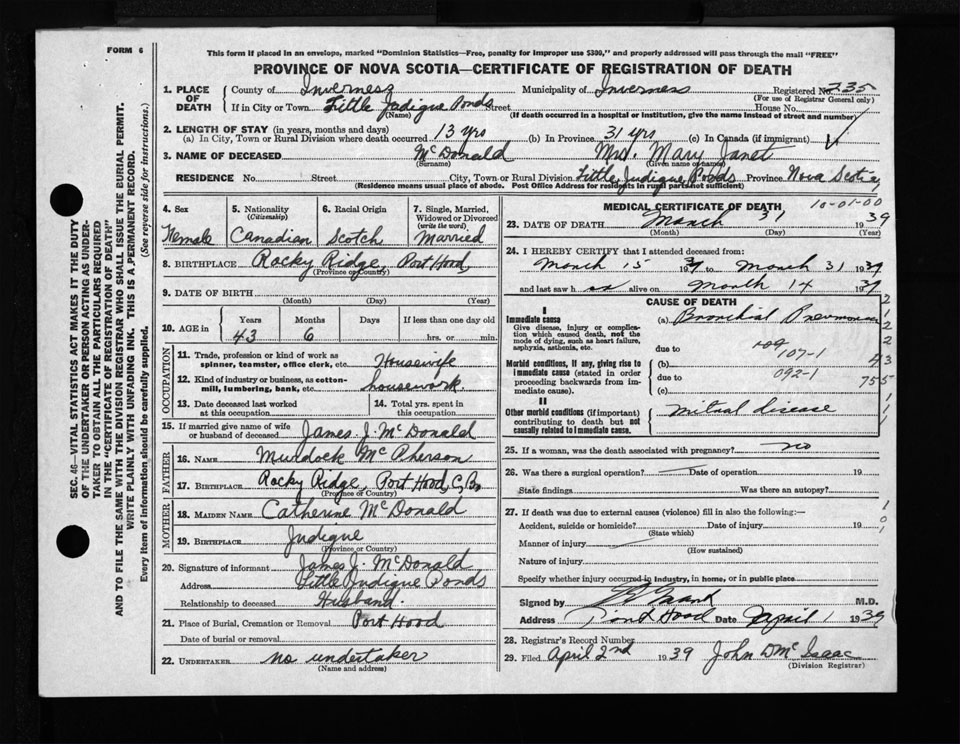 FORM 6
This form if placed in an envelope, marked "Dominion Statistics—Free, penalty for improper use $300," and properly addressed will pass through the mail "FREE"
PROVINCE OF NOVA SCOTIA—CERTIFICATE OF REGISTRATION OF DEATH
1. PLACE OF DEATH County of Inverness Municipality of Inverness Registered No. 235
(For use of Registrar General only)
If in City or Town Little Judique Ponds Street House No.
(Name) (If death occurred in a hospital or institution, give the name instead of street and number)
2. LENGTH OF STAY (in years, months and days)
(a) In City, Town or Rural Division where death occurred 13 yrs (b) In Province 31 yrs (c) In Canada (if immigrant)
3. NAME OF DECEASED McDonald Mrs. Mary Janet
(Surname) (Given name or names)
RESIDENCE No. Street City, Town or Rural Division Little Judique Ponds Province Nova Scotia
(Residence means usual place of abode. Post Office Address for residents in rural parts not sufficient)
4. Sex Female
5. Nationality (Citizenship) Canadian
6. Racial Origin Scotch
7. Single, Married, Widowed or Divorced (write the word) Married
8. BIRTHPLACE Rocky Ridge, Port Hood
(Province or Country)
9. DATE OF BIRTH
(Month) (Day) (Year)
10. AGE in Years Months Days If less than one day old
43 6 hrs. or min.
OCCUPATION
11. Trade, profession or kind of work as spinner, teamster, office clerk, etc. Housewife
12. Kind of industry or business, as cotton-mill, lumbering, bank, etc. housework.
13. Date deceased last worked at this occupation
14. Total yrs. spent in this occupation
15. If married give name of wife or husband of deceased James J. McDonald
FATHER
16. NAME Murdock McPherson
17. BIRTHPLACE Rocky Ridge, Port Hood, C.B.
(Province or Country)
MOTHER
18. MAIDEN NAME Catherine McDonald
19. BIRTHPLACE Judique
(Province or Country)
20. Signature of informant James J. McDonald
Address Little Judique Ponds
Relationship to deceased Husband
21. Place of Burial, Cremation or Removal Port Hood
Date of burial or removal
22. UNDERTAKER no undertaker
(Name and address)
MEDICAL CERTIFICATE OF DEATH 10-01-00
23. DATE OF DEATH March 31 1939
(Month) (Day) (Year)
24. I HEREBY CERTIFY that I attended deceased from:
March 15 1939 to March 31 1939
and last saw h er alive on March 14 1939
CAUSE OF DEATH
I
Immediate cause (a) Bronchial Pneumonia
Give disease, injury or complication which caused death, not the mode of dying, such as heart failure, asphyxia, asthenia, etc.
due to 109
107-1
Morbid conditions, if any, giving rise to immediate cause (stated in order proceeding backwards from immediate cause).
(b)
due to 092-1
(c)
II
Other morbid conditions (if important) contributing to death but not causally related to immediate cause.
mitral disease
25. If a woman, was the death associated with pregnancy? no
26. Was there a surgical operation? Date of operation 19
State findings Was there an autopsy?
27. If death was due to external causes (violence) fill in also the following:—
Accident, suicide or homicide? Date of injury 19
(State which)
Manner of injury
(How sustained)
Nature of injury
Specify whether injury occurred in industry, in home, or in public place
Signed by M.D.
Address Port Hood Date April 1 1939
28. Registrar's Record Number
29. Filed April 2nd 1939 John D McIsaac
(Division Registrar)
SEC. 46—VITAL STATISTICS ACT MAKES IT THE DUTY
OF THE UNDERTAKER OR PERSON ACTING AS UNDERTAKER TO OBTAIN ALL THE PARTICULARS REQUIRED
IN THE "CERTIFICATE OF REGISTRATION OF DEATH"
AND TO FILE THE SAME WITH THE DIVISION REGISTRAR WHO SHALL ISSUE THE BURIAL PERMIT.
WRITE PLAINLY WITH UNFADING INK. THIS IS A PERMANENT RECORD.
Every item of information should be carefully supplied. (See reverse side for instructions.)